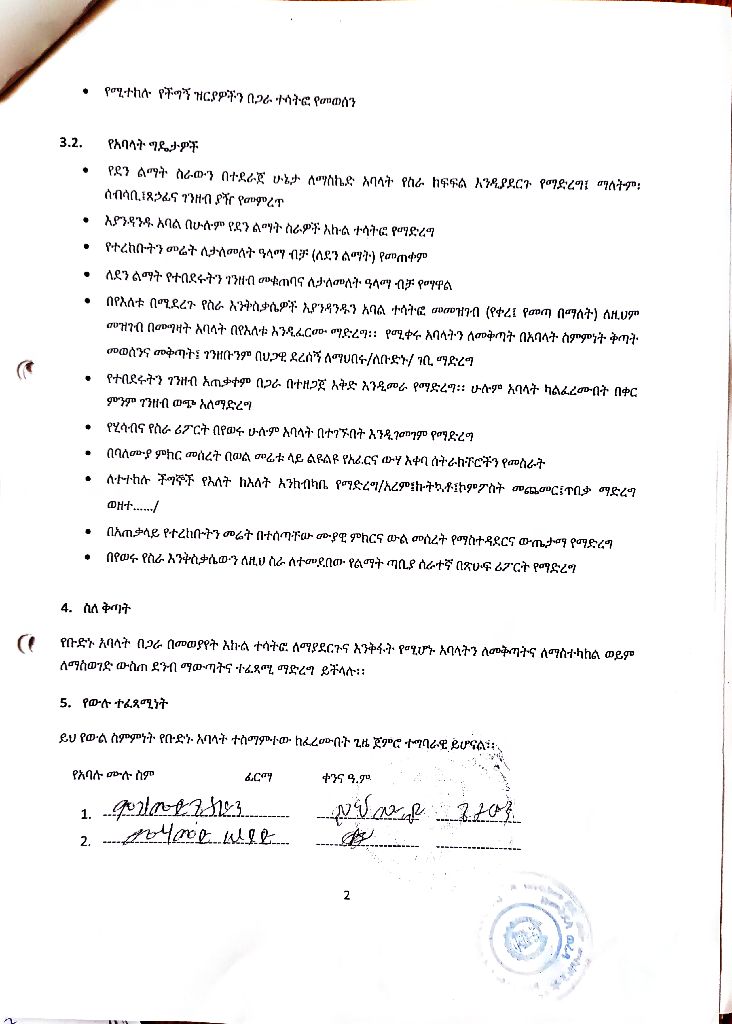 • የሚተከሉ የችግኝ ዝርያዎችን በጋራ ተሳትፎ የመወሰን
3.2. የአባላት ግዴታዎች
• የደን ልማት ስራውን በተደራጀ ሁኔታ ለማስኬድ አባላት የስራ ክፍፍል እንዲያደርጉ የማድረግ፤ ማለትም፡
ሰብሳቢ፤ጸኃፊና ገንዘብ ያዥ የመምረጥ
• እያንዳንዱ አባል በሁሉም የደን ልማት ስራዎች እኩል ተሳትፎ የማድረግ
• የተረከቡትን መሬት ለታለመለት ዓላማ ብቻ (ለደን ልማት) የመጠቀም
• ለደን ልማት የተበደሩትን ገንዘብ መቁጠባና ለታለመለት ዓላማ ብቻ የማዋል
• በየእለቱ በሚደረጉ የስራ እንቅስቃሴዎች እያንዳንዱን አባል ተሳትፎ መመዝገብ (የቀረ፤ የመጣ በማለት) ለዚህም
መዝገብ በመግዛት አባላት በየእለቱ እንዲፈርሙ ማድረግ፡፡ የሚቀሩ አባላትን ለመቅጣት በአባላት ስምምነት ቅጣት
መወሰንና መቅጣት፤ ገንዘቡንም በህጋዊ ደረሰኝ ለማህበሩ/ለቡድኑ/ ገቢ ማድረግ
• የተበደሩትን ገንዘብ አጠቃቀም በጋራ በተዘጋጀ እቅድ እንዲመራ የማድረግ፡፡ ሁሉም አባላት ካልፈረሙበት በቀር
ምንም ገንዘብ ወጭ አለማድረግ
• የሂሳብና የስራ ሪፖርት በየወሩ ሁሉም አባላት በተገኙበት እንዲገመገም የማድረግ
• በባለሙያ ምክር መሰረት በወል መሬቱ ላይ ልዩልዩ የአፈርና ውሃ እቀባ ስትራክቸሮችን የመስራት
• ለተተከሉ ችግኞች የእለት ከእለት እንክብካቤ የማድረግ/አረም፤ኩትኳቶ፤ኮምፖስት መጨመር፤ጥበቃ ማድረግ
ወዘተ....../
• በአጠቃላይ የተረከቡትን መሬት በተሰጣቸው ሙያዊ ምክርና ውል መሰረት የማስተዳደርና ውጤታማ የማድረግ
• በየወሩ የስራ እንቅስቃሴውን ለዚህ ስራ ለተመደበው የልማት ጣቢያ ሰራተኛ በጽሁፍ ሪፖርት የማድረግ
4. ስለ ቅጣት
የቡድኑ አባላት በጋራ በመወያየት እኩል ተሳትፎ ለማያደርጉና እንቅፋት የሚሆኑ አባላትን ለመቅጣትና ለማስተካከል ወይም
ለማስወገድ ውስጠ ደንብ ማውጣትና ተፈጻሚ ማድረግ ይችላሉ፡፡
5. የውሉ ተፈጻሚነት
ይህ የውል ስምምነት የቡድኑ አባላት ተስማምተው ከፈረሙበት ጊዜ ጀምሮ ተግባራዊ ይሆናል፡፡
የአባሉ ሙሉ ስም ፊርማ ቀንና ዓ.ም
1.
2.
2